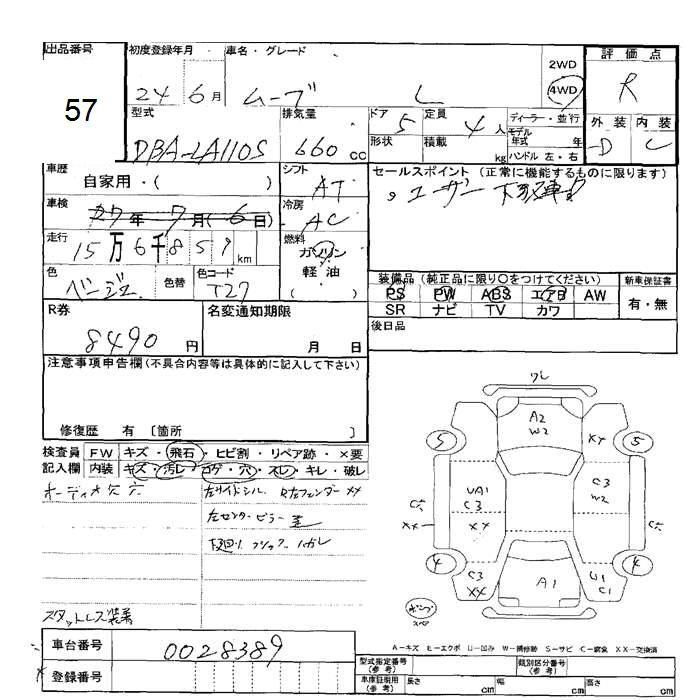 出品番号 57
初度登録年月 24 6月
車名・グレード ムーブ L
2WD
4WD
評価点 R
外装 D 内装 C
型式 DBA-LA110S
排気量 660 cc
ドア 5
形状
定員 4人
積載 kg
ディーラー・並行
モデル年式 年
ハンドル 左・右
車歴 自家用・( )
シフト AT
セールスポイント (正常に機能するものに限ります)
ユーザー下取車
車検 27年7月(6日)
冷房 AC
走行 15万6千859 km
燃料 ガソリン
軽・油
( )
色 ベージュ 色替
色コード T27
装備品 (純正品に限り○をつけてください)
新車保証書
PS PW ABS エアB AW
有・無
SR ナビ TV カワ
R券 8490円
名変通知期限 月 日
後日品
注意事項申告欄(不具合内容等は具体的に記入して下さい)
修復歴 有 〔箇所 〕
検査員記入欄
FW キズ・飛石・ヒビ割・リペア跡・×要
内装 キズ・汚レ・コゲ・穴・スレ・キレ・破レ
オーディオ欠 穴
左サイドシル、 左フェンダー XX
左センターピラー
スタットレス装着
ワレ
A2
W2
5
XX
5
UA1
C3
XX
C3
W2
XX
4
C3
XX
A1
U1
C1
4
A-キズ E-エクボ U-凹み W-補修跡 S-サビ C-腐食 XX-交換済
車台番号 0028389
登録番号
型式指定番号(参考)
類別区分番号(参考)
車庫証明用(参考) 長さ cm 幅 cm 高さ cm